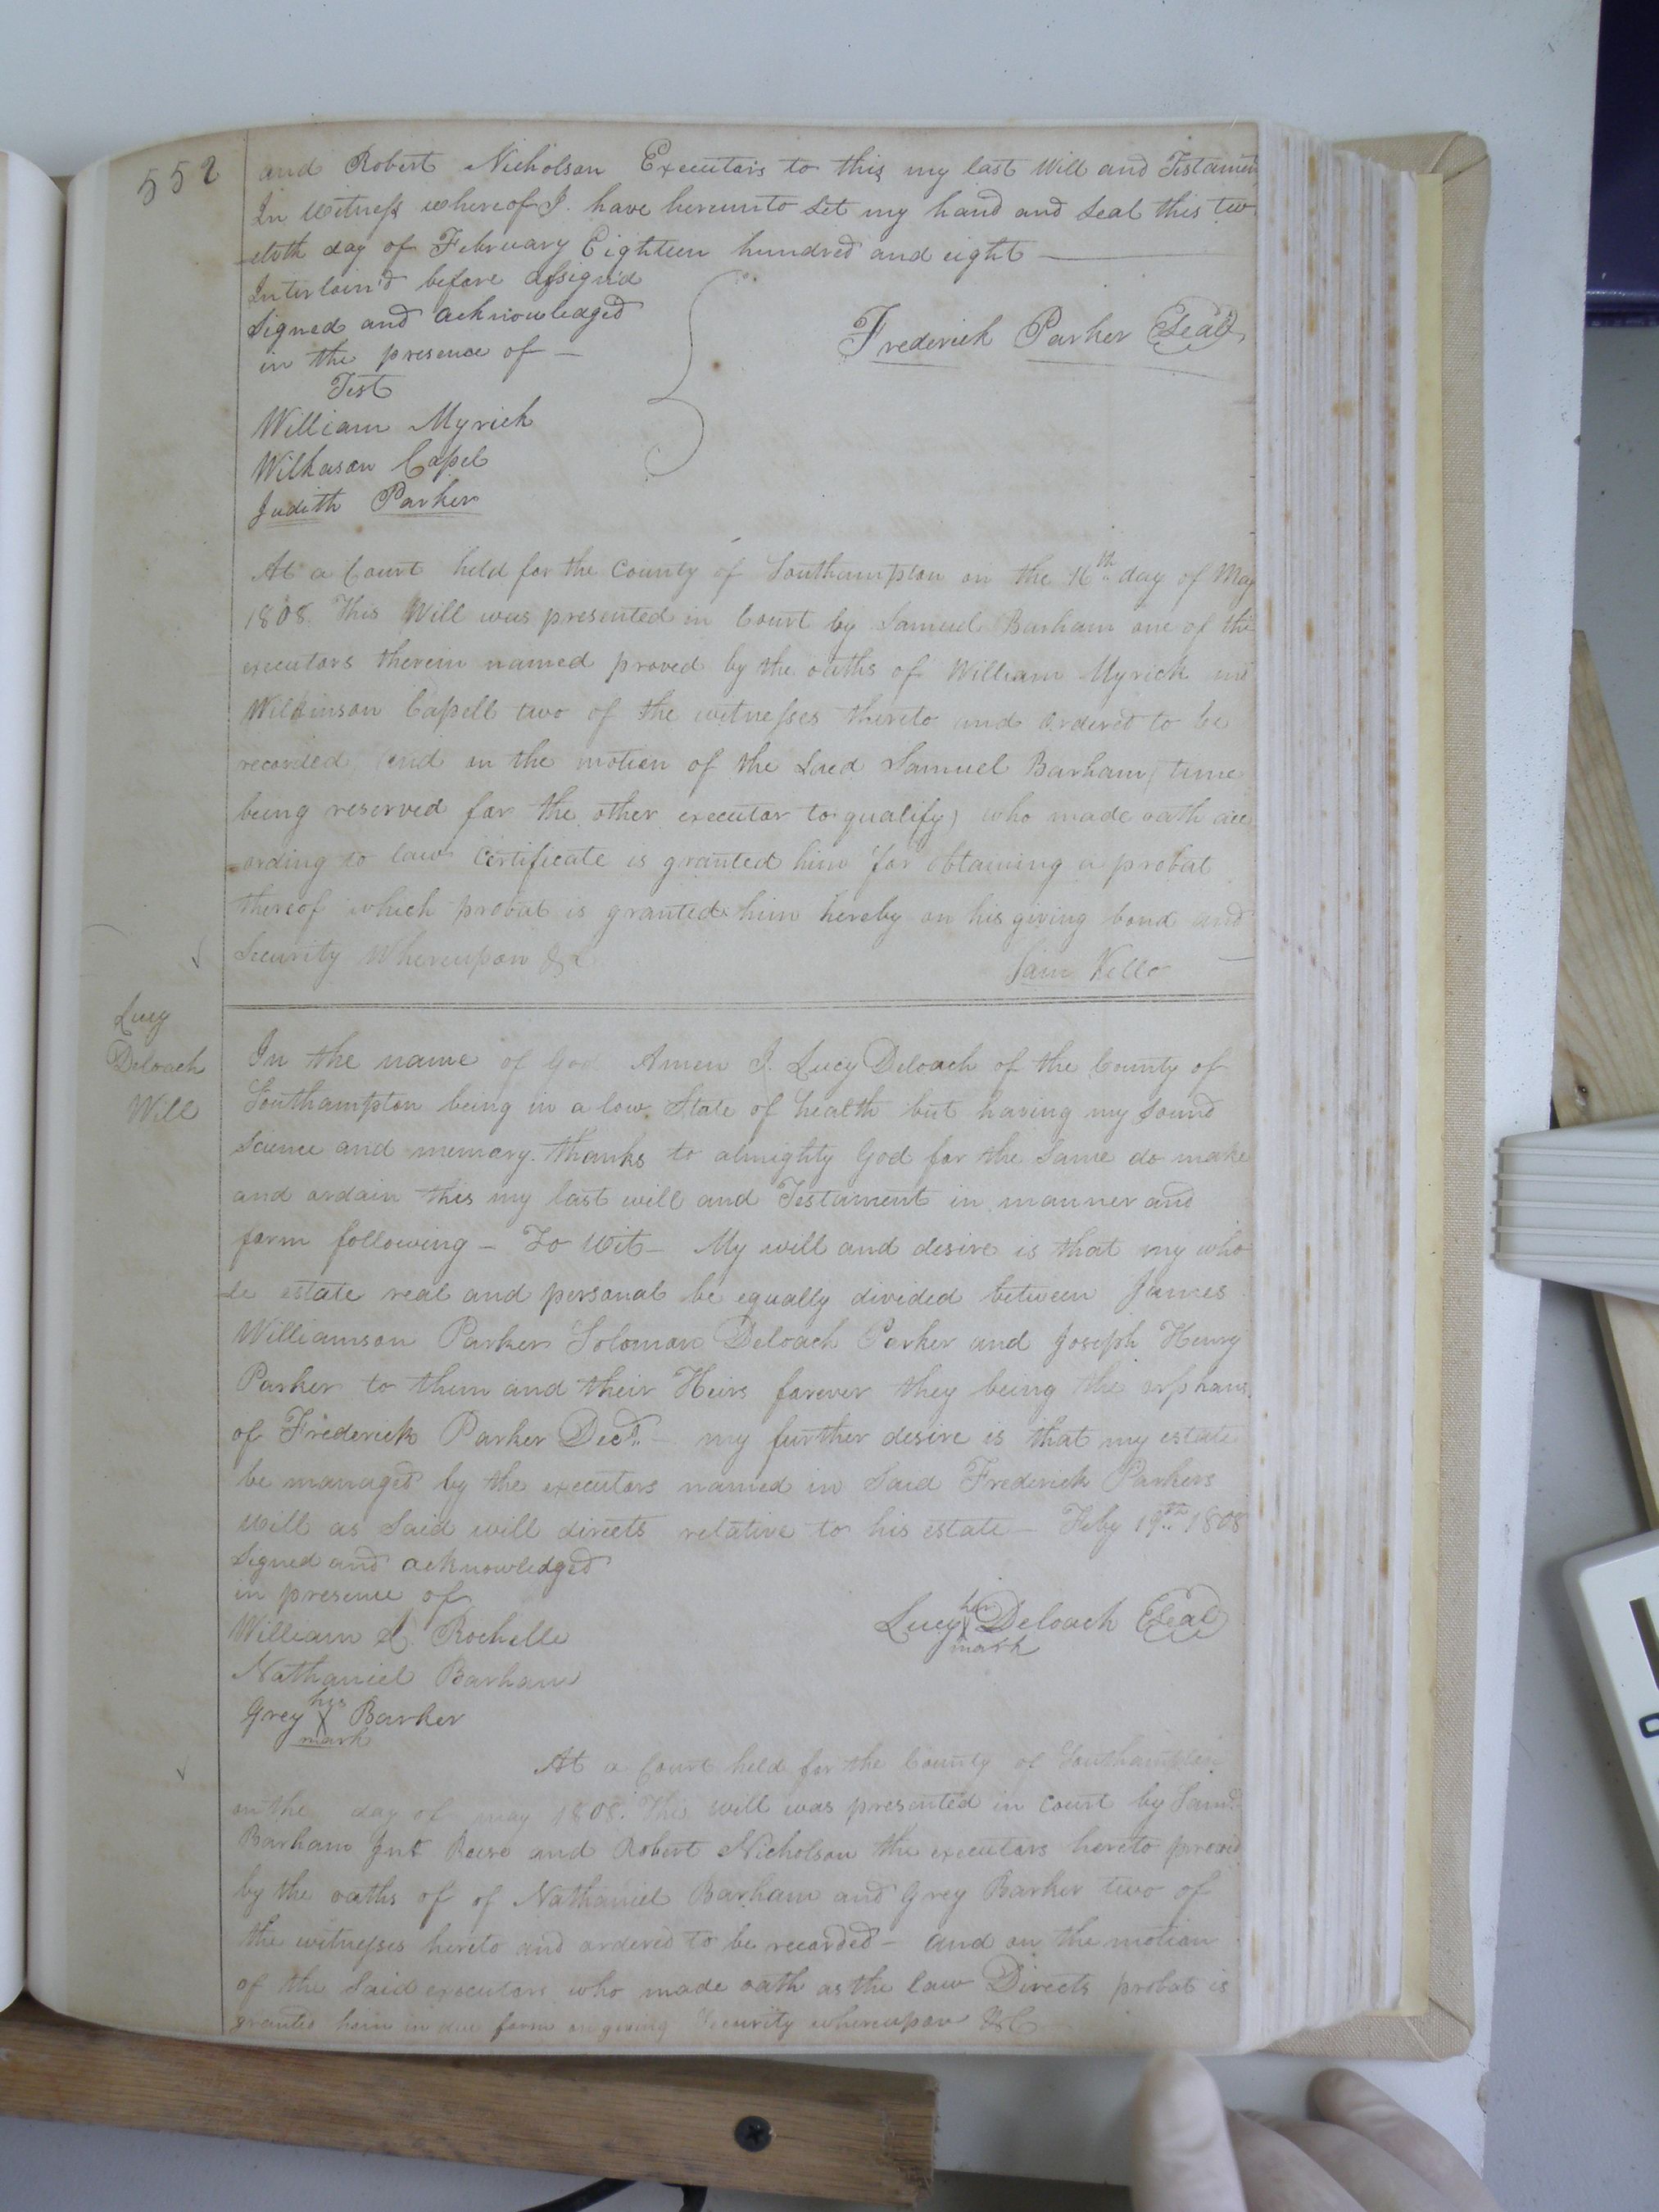 552
and Robert Nicholson Executors to this my last Will and Testament
In Witness whereof I have hereunto set my hand and seal this tw
-elvth day of February Eighteen hundred and eight
Interloin'd before assign'd
Signed and acknowledged
in the presence of —
Frederick Parker Seal
Test
William Myrick
Wilkason Capel
Judith Parker
At a Court held for the County of Southampton on the 16th day of May
1808. This Will was presented in Court by Samuel Barham one of the
executors therein named proved by the oaths of William Myrick and
Wilkinson Capell two of the witnesses thereto and ordered to be
recorded, (and on the motion of the said Samuel Barham, time
being reserved for the other executor to qualify) who made oath acc
-ording to law Certificate is granted him for obtaining a probat
thereof which probat is granted him hereby on his giving bond and
Security Whereupon &c
Sam Kello
Lucy
Deloach
Will
In the name of God Amen I. Lucy Deloach of the County of
Southampton being in a low State of health but having my sound
science and memory. thanks to almighty God for the same do make
and ordain this my last will and Testament in manner and
form following — To Wit — My will and desire is that my who
-le estate real and personal be equally divided between James
Williamson Parker Soloman Deloach Parker and Joseph Henry
Parker to them and their Heirs forever they being the orphans
of Frederick Parker Decd. — my further desire is that my estate
be managed by the executors named in said Frederick Parkers
Will as said will directs relative to his estate — Feby 19th 1808
Signed and acknowledged
in presence of
William Rochelle
Lucy her X mark Deloach Seal
Nathaniel Barham
Grey his X mark Barker
At a Court held for the County of Southampton
on the day of may 1808. This will was presented in court by Saml.
Barham and Robert Nicholson the executors hereto proved
by the oaths of of Nathaniel Barham and Grey Barker two of
the witnesses hereto and ordered to be recorded — and on the motion
of the said executors who made oath as the law Directs probat is
granted him in due form on giving Security whereupon &c